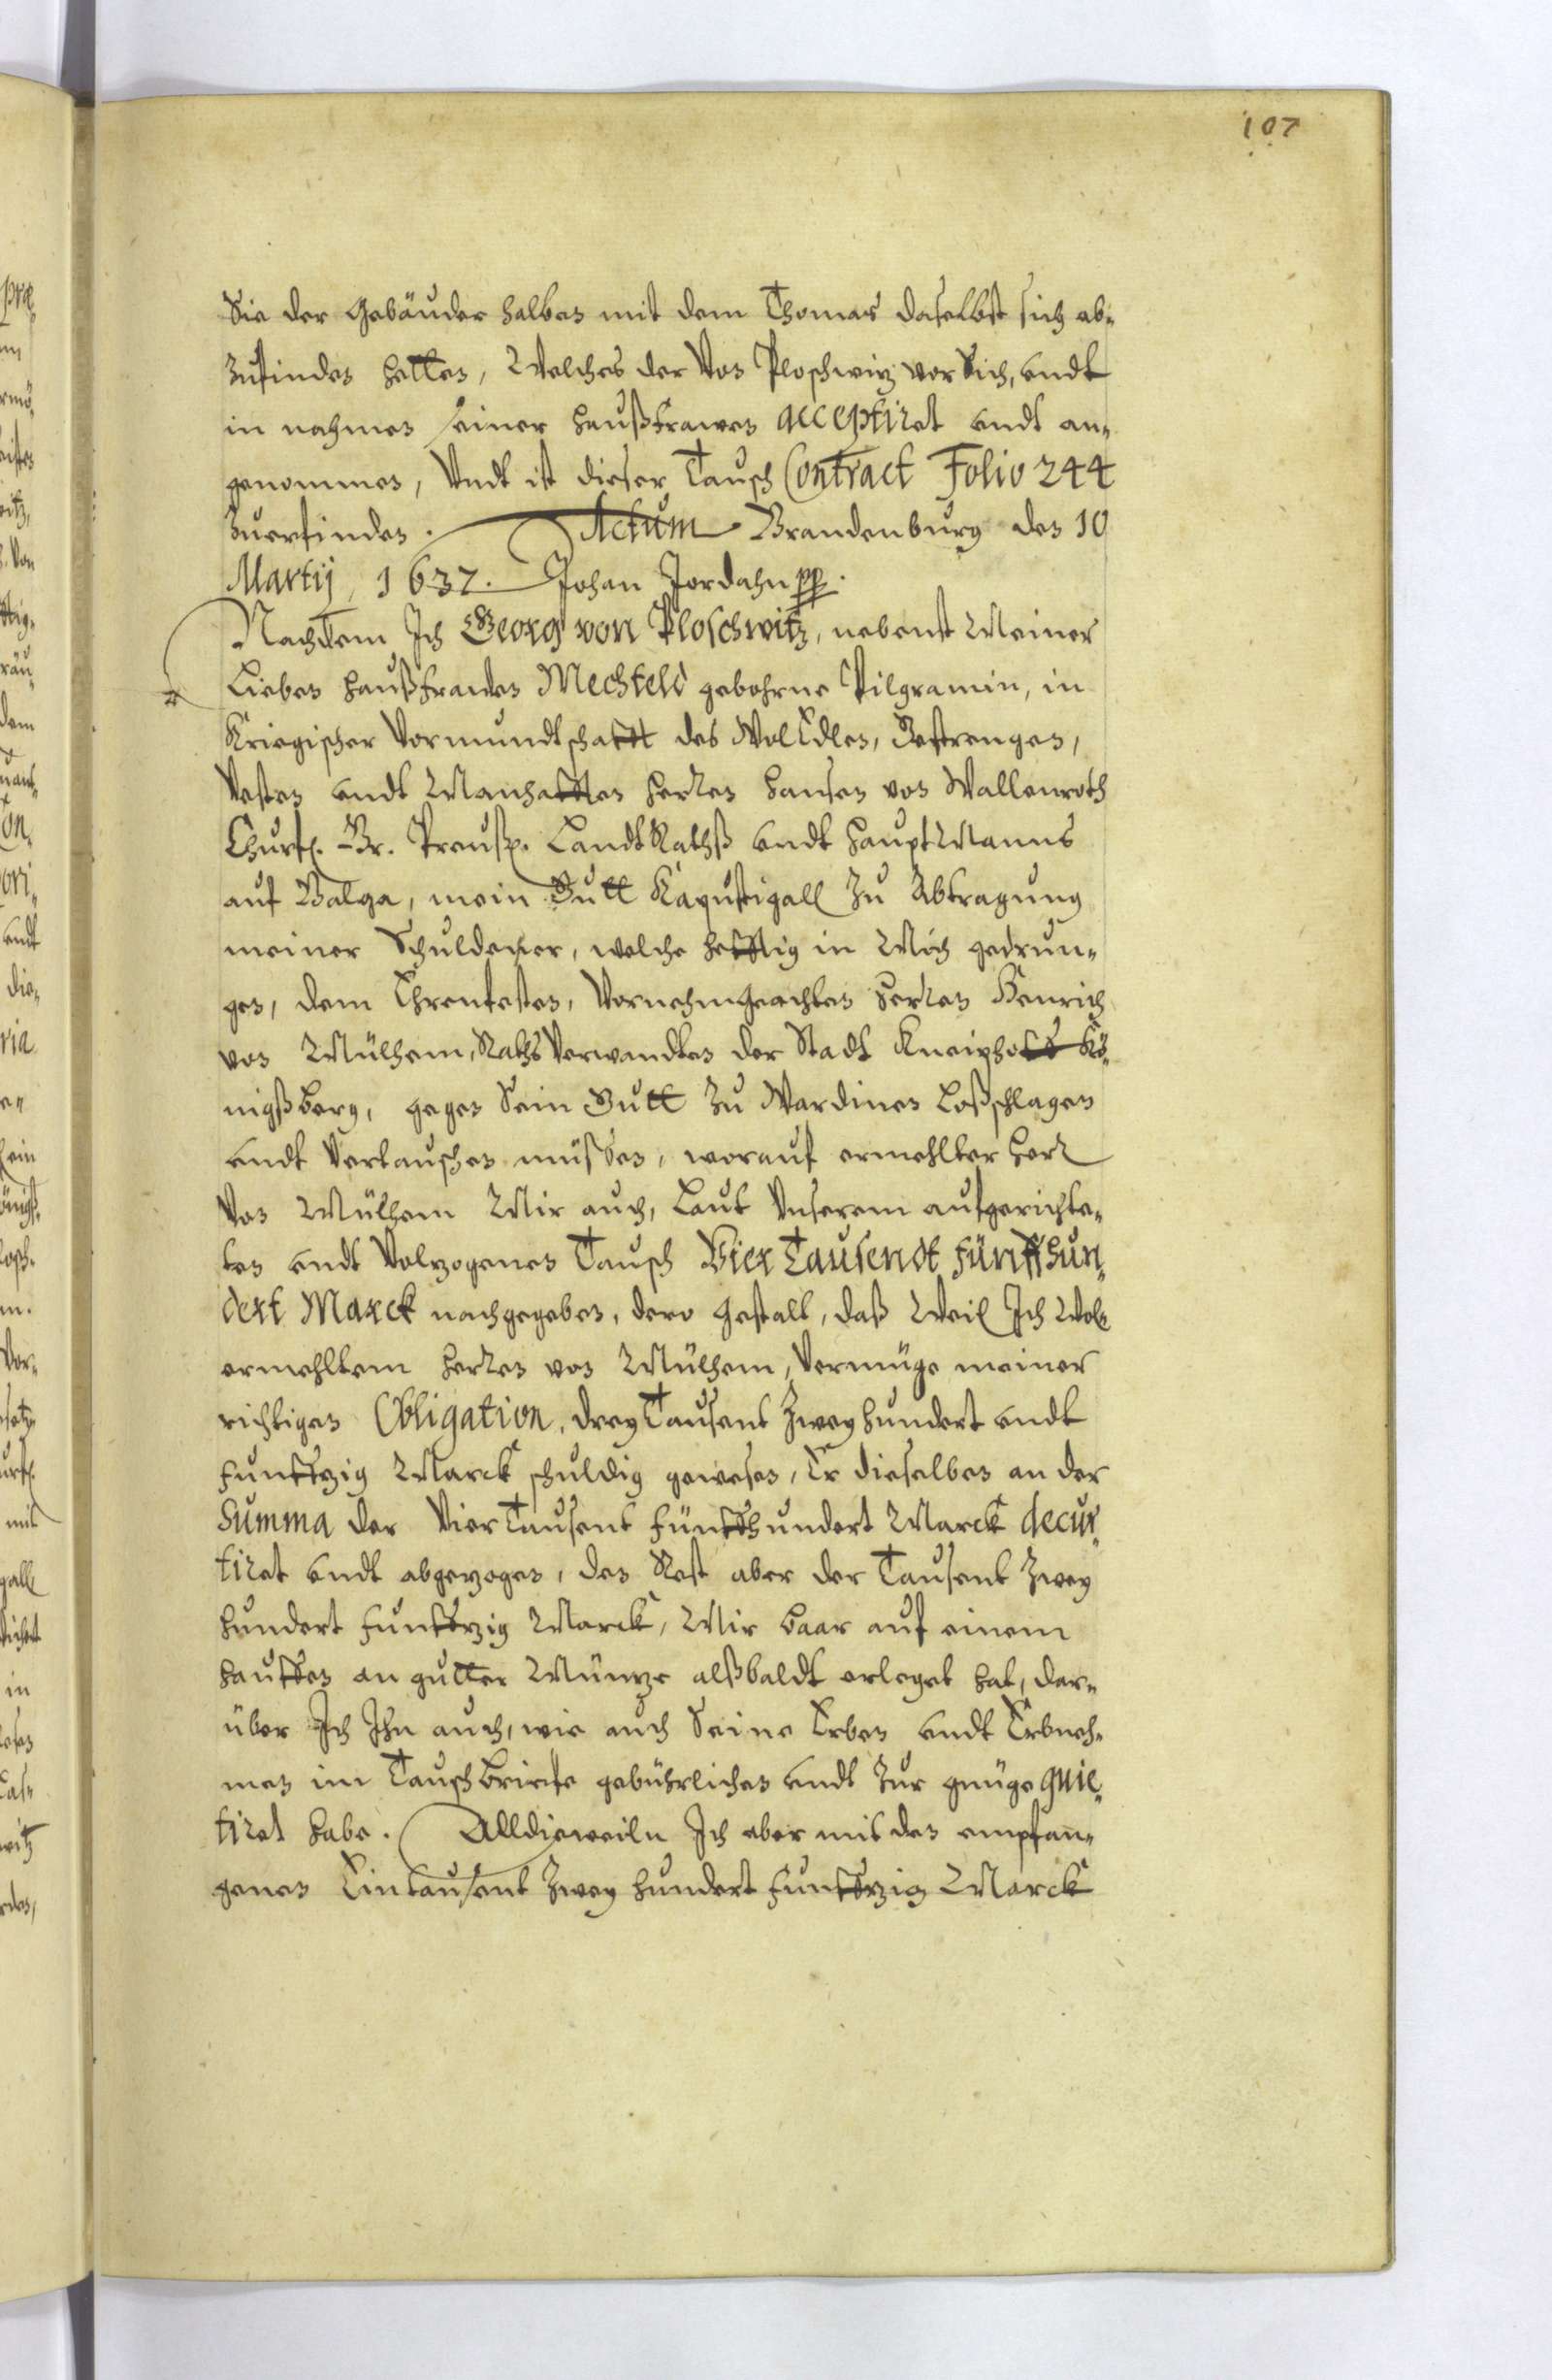 107
Sie der Gebäuder halben mit dem Thomas daselbst sich ab-
zufinden hetten, Welches der von Ploschwiz vor Sich, undt
in nahmen seiner Haußfrawen acceptiret undt an-
genommen, Undt ist dieser Tausch Contract Folio 244
Zuerfinden. Actum Brandenburg den 10
Martij, 1637. Johan Jordahn pp.
Nachdem Ich Georg von Ploschwitz, nebenst Meiner
Lieben Haußfrauen Mechteld gebohrne Pilgramin, in
Kriegischer Vormundtschafft des WolEdlen, Gestrengen,
Vesten undt Manhafften Herren Hansen von Wallenroth
Churfl. Br. Preuß. LandtRathß undt HauptManns
auf Balga, mein Gutt Kapustigall zu Abtragung
meiner Schuldener, welche hefftig in Mich gedrun-
gen, dem Ehrenfesten, Vornehmgeachten Herren Henrich
von Mülhem, RathsVerwandten der Stadt Kneiphoff Kö-
nigßberg, gegen Sein Gutt zu Wardinen Loßschlagen
undt Vertauschen müssen, worauf ermehlter Herr
Von Mülhem Mir auch, Laut Unserem aufgerichte-
ten undt Volzogenen Tausch Vier Tausendt Fünffhun-
dert Marck nachgegeben, dero gestalt, daß Weil Ich Wol
ermehltem Herren von Mülhem, Vermüge meiner
richtigen Obligation, drey Tausent Zweyhundert undt
Funffzig Marck schuldig gewesen, Er dieselben an der
Summa der Vier Tausent Fünffhundert Marck decur-
tiret undt abgezogen, den Rest aber der Tausent Zwey
hundert Funffzig Marck, Mir baar auf einem
hauffen an gutter Müntze alßbaldt erleget hat, dar-
über Ich Ihn auch, wie auch Seine Erben undt Erbneh-
men im Tauschbriefe gebührlichen undt zur gnüge quit-
tiret habe. Alldieweiln Ich aber mit den empfan-
genen Eintausent Zwey hundert Funffzig Marck